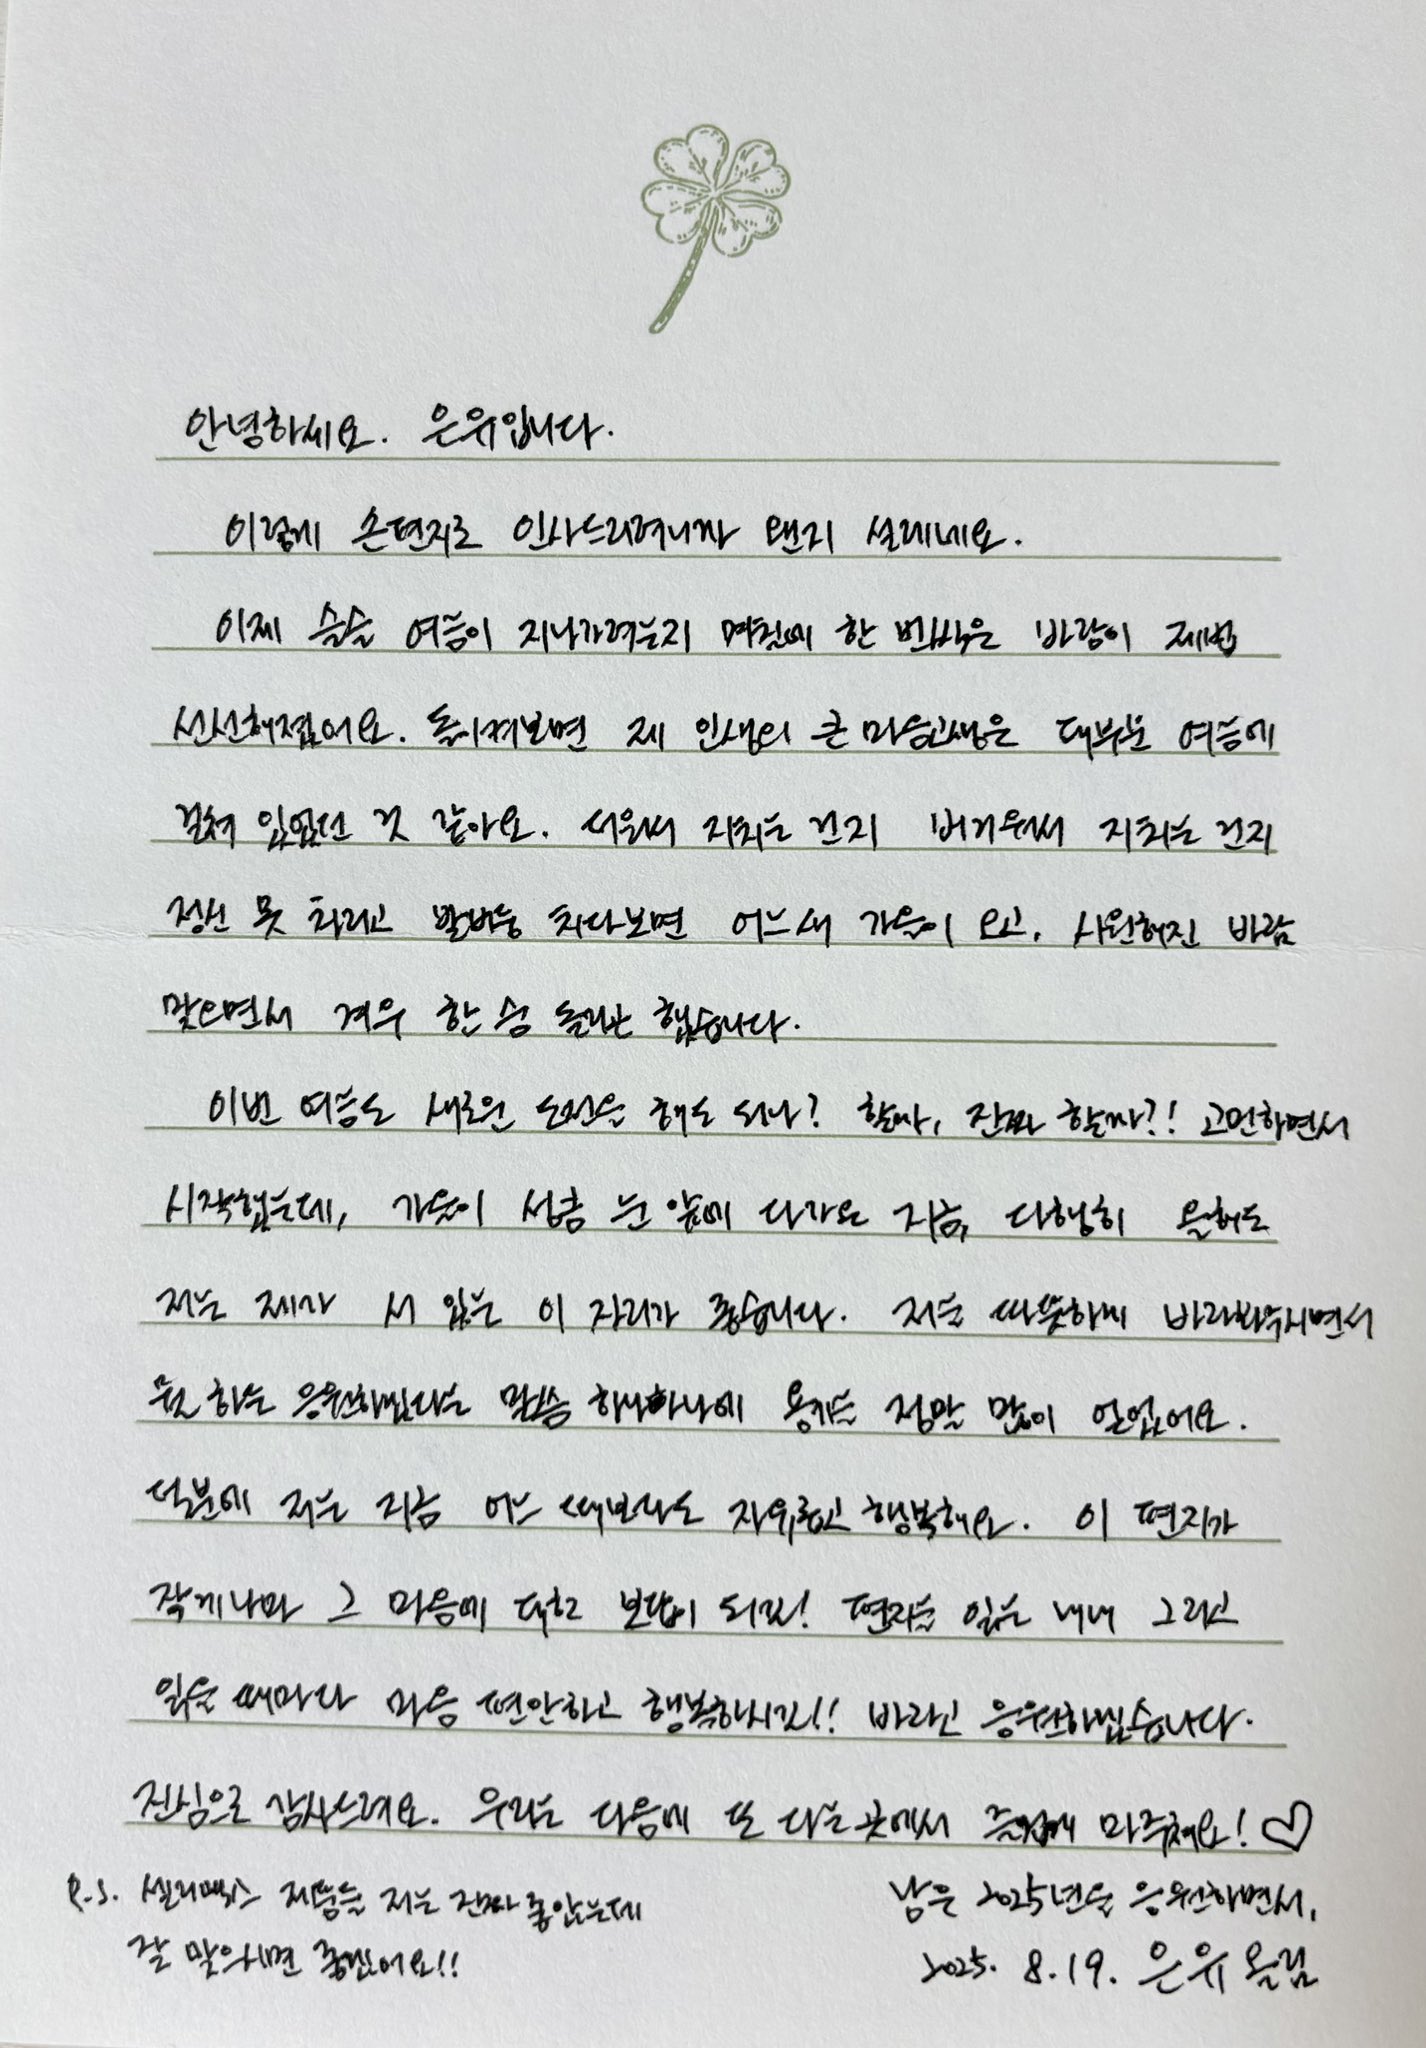 안녕하세요. 은유입니다.
이렇게 손편지로 인사드리려니까 왠지 설레네요.
이제 슬슬 여름이 지나가려는지 며칠에 한 번씩은 바람이 제법
선선해졌어요. 돌이켜보면 제 인생의 큰 마음고생은 대부분 여름에
걸쳐 있었던 것 같아요. 더워서 지치는 건지 버거워서 지치는 건지
정신 못 차리고 발버둥 치다보면 어느새 가을이 오고, 시원해진 바람
맞으면서 겨우 한 숨 돌리곤 했습니다.
이번 여름도 새로운 도전을 해도 되나? 할까, 진짜 할까?! 고민하면서
시작했는데, 가을이 성큼 눈 앞에 다가온 지금, 다행히 올해도
저는 제가 서 있는 이 자리가 좋습니다. 저를 따뜻하게 바라봐주시면서
뭘 하든 응원하겠다는 말씀 하나하나에 용기를 정말 많이 얻었어요.
덕분에 저는 지금 어느 때보다도 자유롭고 행복해요. 이 편지가
작게나마 그 마음에 대한 보답이 되길! 편지를 읽는 내내 그리고
읽을 때마다 마음 편안하고 행복하시길!! 바라고 응원하겠습니다.
진심으로 감사드려요. 우리는 다음에 또 다른 곳에서 즐겁게 마주쳐요! ♡
P.S. 셀리맥스 제품들 저는 진짜 좋았는데
잘 맞으시면 좋겠어요!!
남은 2025년을 응원하면서,
2025. 8. 19. 은유 올림